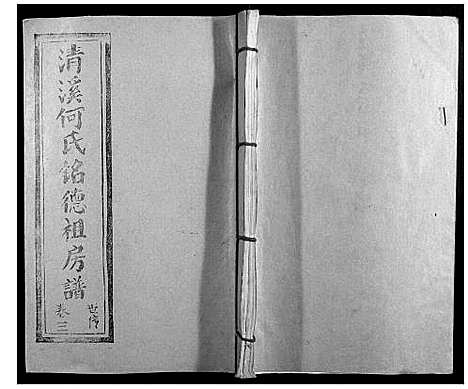 清溪何氏銘德祖房譜
世傳
卷三